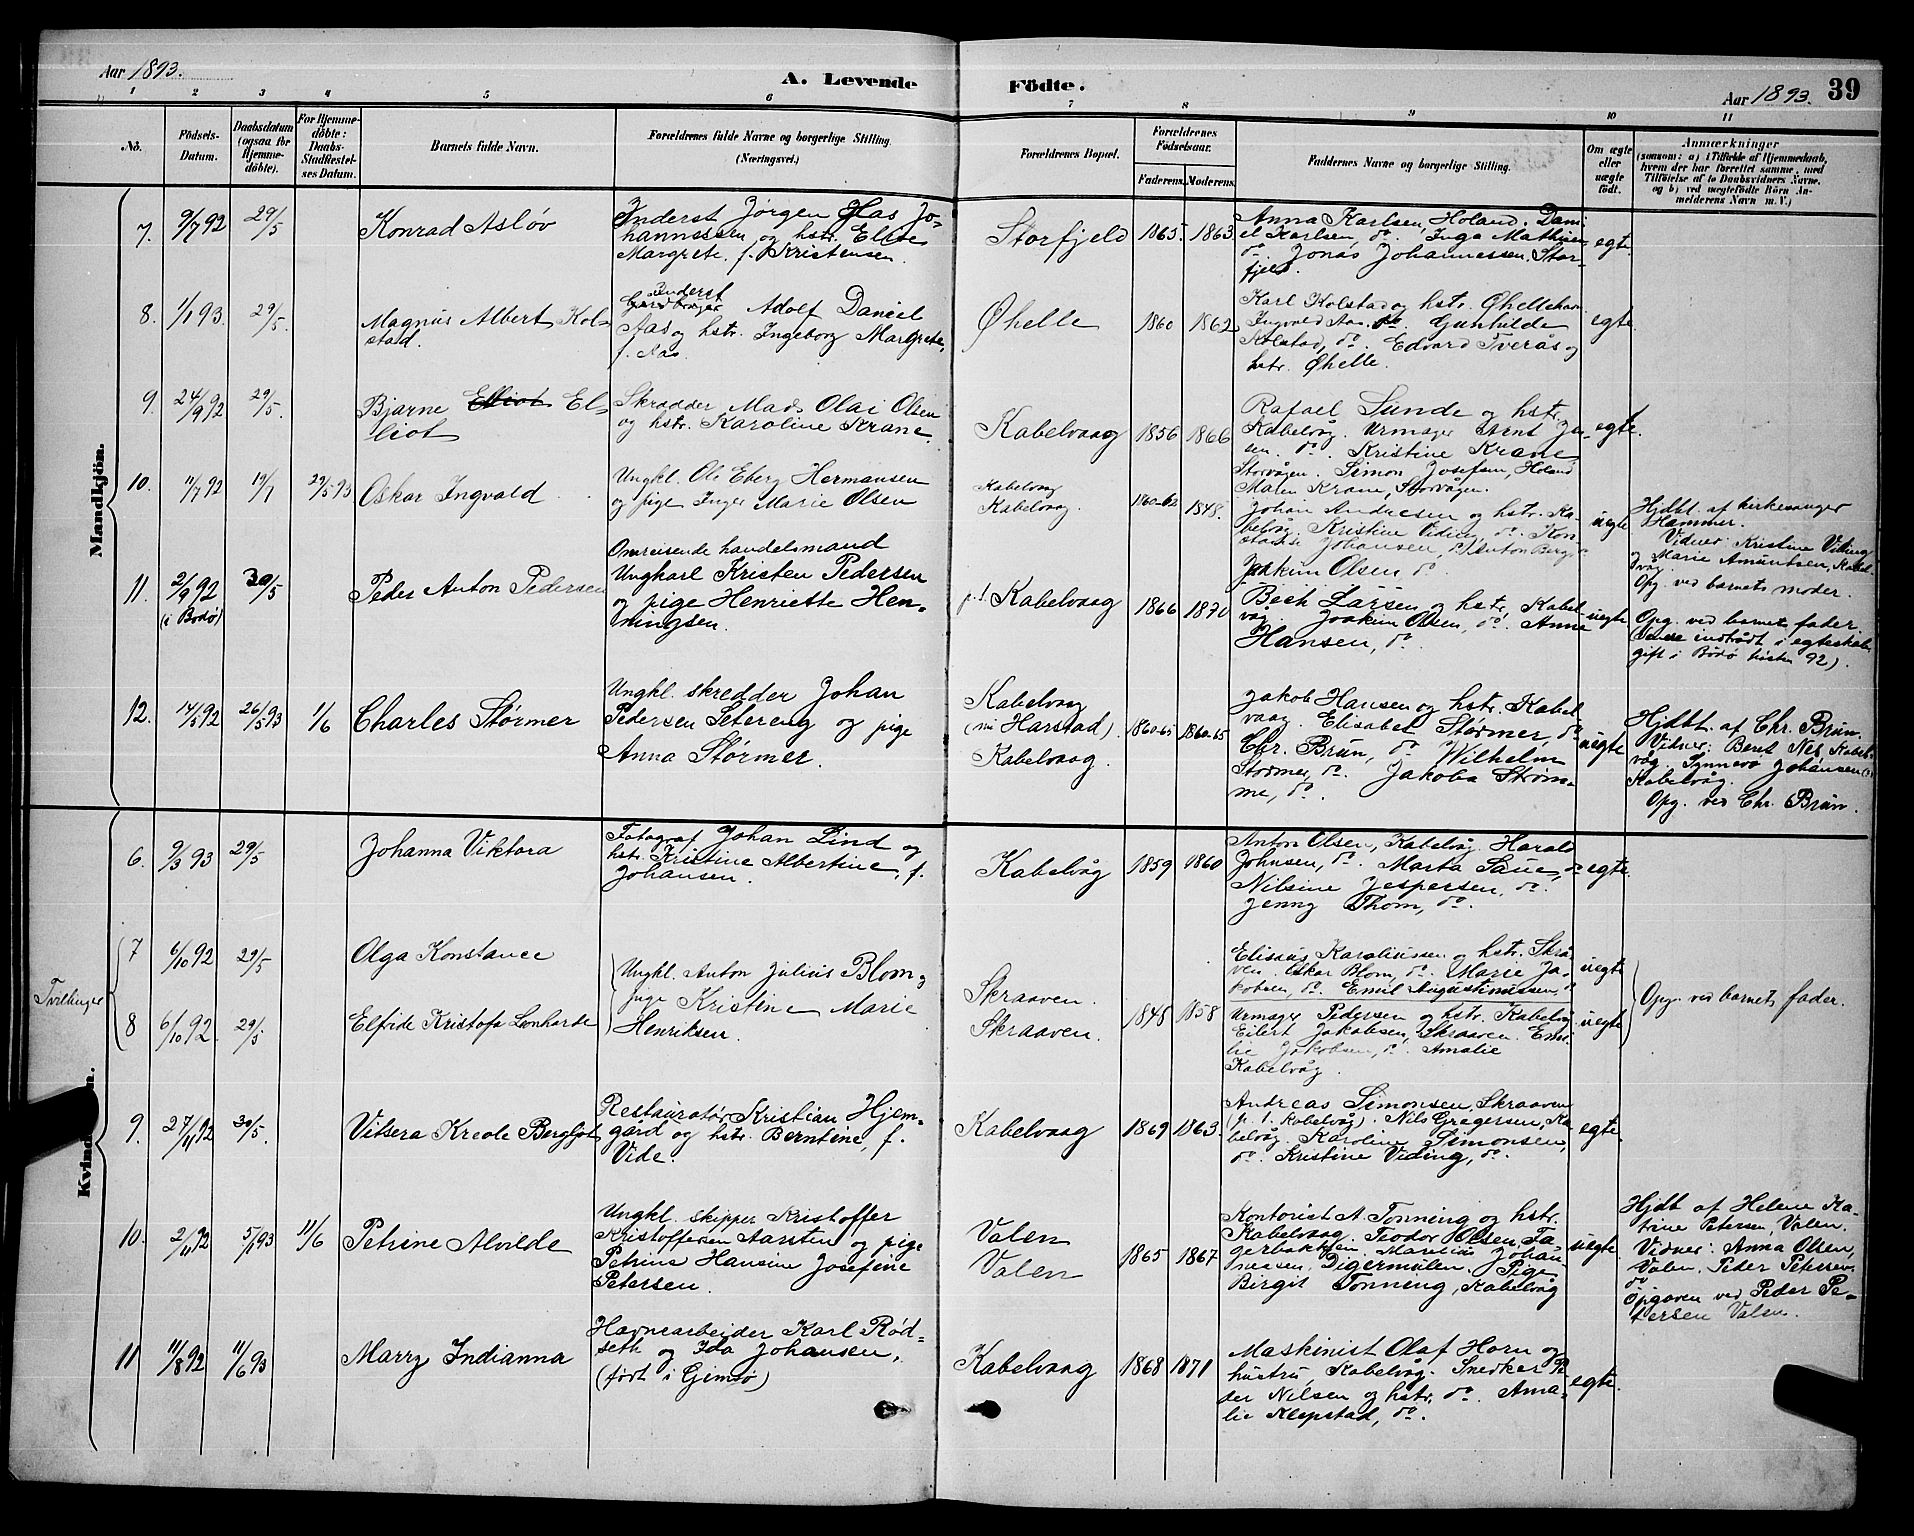 Aar 1893.
A. Levende Födte.
Aar 1893. 39
1 2 3 4 5 6 7 8 9 10 11
No.
Födsels-
Datum.
Daabsdatum
(ogsaa for
Hjemme-
döbte).
For Hjemme-
döbte:
Daabs-
Stadfæstel-
ses Datum.
Barnets fulde Navn.
Forældrenes fulde Navne og borgerlige Stilling.
(Næringsvei.)
Forældrenes Bopæl.
Forældrenes
Födselsaar.
Faderens. Moderens.
Faddernes Navne og borgerlige Stilling.
Om ægte
eller
uægte
födt.
Anmærkninger
(saasom: a) i Tilfælde af Hjemmedaab,
hvem der har forrettet samme, med
Tilföielse af to Daabsvidners Navne,
og b) ved uægtefödte Börn An-
melderens Navn m. V.)
Mandkjön.
7. 9/7 92 29/5
Konrad Asløv
Inderst Jørgen Elias Jo-
hannessen og hstr. Ellen
Margrete, f. Kristensen.
Storfjeld 1865. 1863.
Anna Karlsen, Holand. Dani-
el Karlsen, do. Inga Mathisen
do. Jonas Johannessen, Stor-
fjeld.
egte.
8. 1/1 93. 29/5.
Magnus Albert Kol-
stad.
Inderst
Adolf Daniel
Aas og hstr. Ingeborg Margrete,
f. Aas.
Øhelle 1860 1862
Karl Kolstad og hstr. Øhellehavn
Ingvald Aas. do. Gunhilde
Kolstad, do. Edvard Tverås og
hstr. Øhelle.
egte.
9. 24/9 92 29/5.
Bjarne Elliot El-
liot
Skrædder Mads Olai Olsen
og hstr. Karoline Krane.
Kabelvaag 1856 1866
Rafael Sunde og hstr.
Kabelvåg. Urmager Arnt Jen-
sen. do. Kristine Krane
Storvågen. Simon Josefsen, Holand
Maren Krane, Storvågen.
egte.
10. 11/7 92 19/7 29/5 93
Oskar Ingvald
Ungkl. Ole Eberg Hermansen
og pige Inger Marie Olsen
Kabelvaag
Kabelvaag. 1860-62 1848.
Johan Andresen og hstr. Ka-
belvåg. Kristine Viding, do. Kon-
stanse Johansen, do. Anton Berg, do
Joakim Olsen, do.
uegte
Hjdbt. af kirkesanger
Hammer.
Vidner: Kristine Viding
og Marie Amundsen, Kabel-
våg.
Opg. ved barnets moder.
11. 2/9 92 (i Bodø) 30/5
Peder Anton Pedersen
Omreisende handelsmand
Ungkarl Kristen Pedersen
og pige Henriette Hen-
ningsen.
p.t. Kabelvaag 1866 1870
Bech Larsen og hstr. Kabel-
våg. Joakim Olsen, do. Anne
Hansen, do.
uegte
Opg. ved barnets fader
(Senere indtrådt i egteskab,
gift i Bodø høsten 92).
12. 14/5 92 26/5 93 1/6
Charles Størmer
Ungkl. skredder Johan
Pedersen Setereng og pige
Anna Størmer.
Kabelvaag
(nu Harstad).
Kabelvaag. 1860-65 1860-65
Jakob Hansen og hstr. Kabel-
vaag. Elisabet Størmer, do
Chr. Bruun, do. Wilhelm
Størmer, do. Jakoba Strøm-
me, do.
uegte
Hjdbt. af Chr. Brun.
Vidner: Bent Nes, Kabel-
våg. Synnevø Johansen
Kabelvåg.
Opg. ved Chr. Brun.
Kvindekjön.
6. 9/3 93 29/5
Johanna Viktora
Fotograf Johan Lind og
hstr. Kristine Albertine, f.
Johansen.
Kabelvåg 1859 1860
Anton Olsen, Kabelvåg. Harald
Johnsen, do. Marta Saue, do
Nilsine Jespersen, do.
Jenny Thom, do.
egte.
Tvillinger
7 6/10 92 29/5
Olga Konstance
Ungkl. Anton Julius Blom og
pige Kristine Marie
Henriksen.
Skraaven.
Elisæus Karoliussen og hstr. Skrå-
ven. Oskar Blom, do. Marie Ja-
kobsen, do. Emil Augustinussen, do
uegte
Opg. ved barnets fader.
8 6/10 92. 29/5
Elfride Kristofa Leonharde
Skraaven. 1848 1858
Urmager Pedersen og hstr. Kabelvåg
Eilert Jakobsen, Skraaven. Emi-
lie Jakobsen, do. Amalie
Kabelvåg.
uegte
9. 27/11 92 30/5.
Vitsera Kreole Bergljot
Restauratør Kristian Hjem-
gård og hstr. Berntine, f.
Vide.
Kabelvaag 1869 1863.
Andreas Simonsen, Skraaven
(p. t. Kabelvåg). Nils Gregersen, Ka-
belvåg. Karoline Simonsen,
do. Kristine Viding, do.
egte.
10. 2/11 92 5/1 93 11/6
Petrine Alvilde
Ungkl. skipper Kristoffer
Kristoffersen Aarsten og pige
Petrine Hansine Josefine
Petersen.
Valen
Valen 1865 1867
Kontorist A. Tonning og hstr.
Kabelvaag. Teodor Olsen, Fa-
gerbakken. Marelius Johan-
nesen, Digermulen. Pige
Birgit Tonning, Kabelvåg
uegte.
Hjdt af Helene Ka-
trine Petersen, Valen.
Vidner: Anna Olsen,
Valen. Peder Petersen
do
Opgaven ved Peder Pe-
tersen Valen.
11 11/8 92 11/6 93
Marry Indianna
Havnearbeider Karl Rød-
seth og Ida Johansen,
(født i Gimsø)
Kabelvaag 1868 1871
Maskinist Olaf Horn og
hustru, Kabelvåg. Snedker Pe-
der Nilsen og hstr, do. Ama-
lie Klepstad, do.
egte.